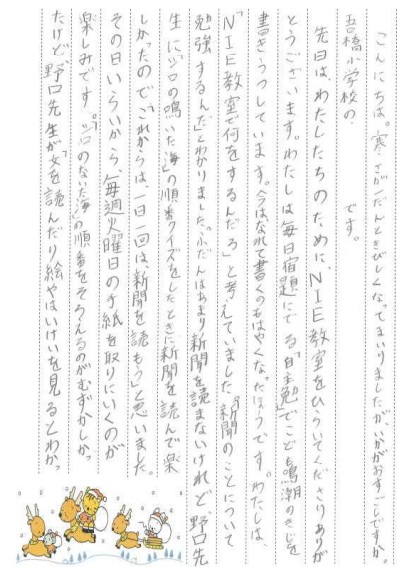 こんにちは。寒さがだんだんときびしくなってまいりましたが、いかがおすごしですか。
吾橋小学校の　　　です。
先日は、わたしたちのために、NIE教室をひらいてくださりありが
とうございます。わたしは毎日宿題にでる「自主勉」でこども鳴潮のきじを
書きうつしています。今は、なれて書くのもはやくなったほうです。わたしは、
「NIE教室で何をするんだろ」と考えていました。「新聞のことについて
勉強するんだ」とわかりました。ふだんはあまり新聞を読まないけれど野口先
生に、「シロの鳴いた海」の順番クイズをしたときに新聞を読んで楽
しかったので「これからは、一日一回は新聞を読もう」と思いました。
その日いらいから、毎週火曜日の手紙を取りにいくのが
楽しみです。「シロのないた海」の順番をそろえるのがむずかしかっ
たけど、野口先生が文を読んだり絵やはいけいを見るとわかっ